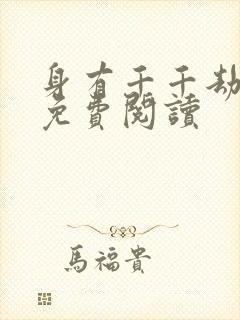 身有千千劫
免費閱讀
馬福貴